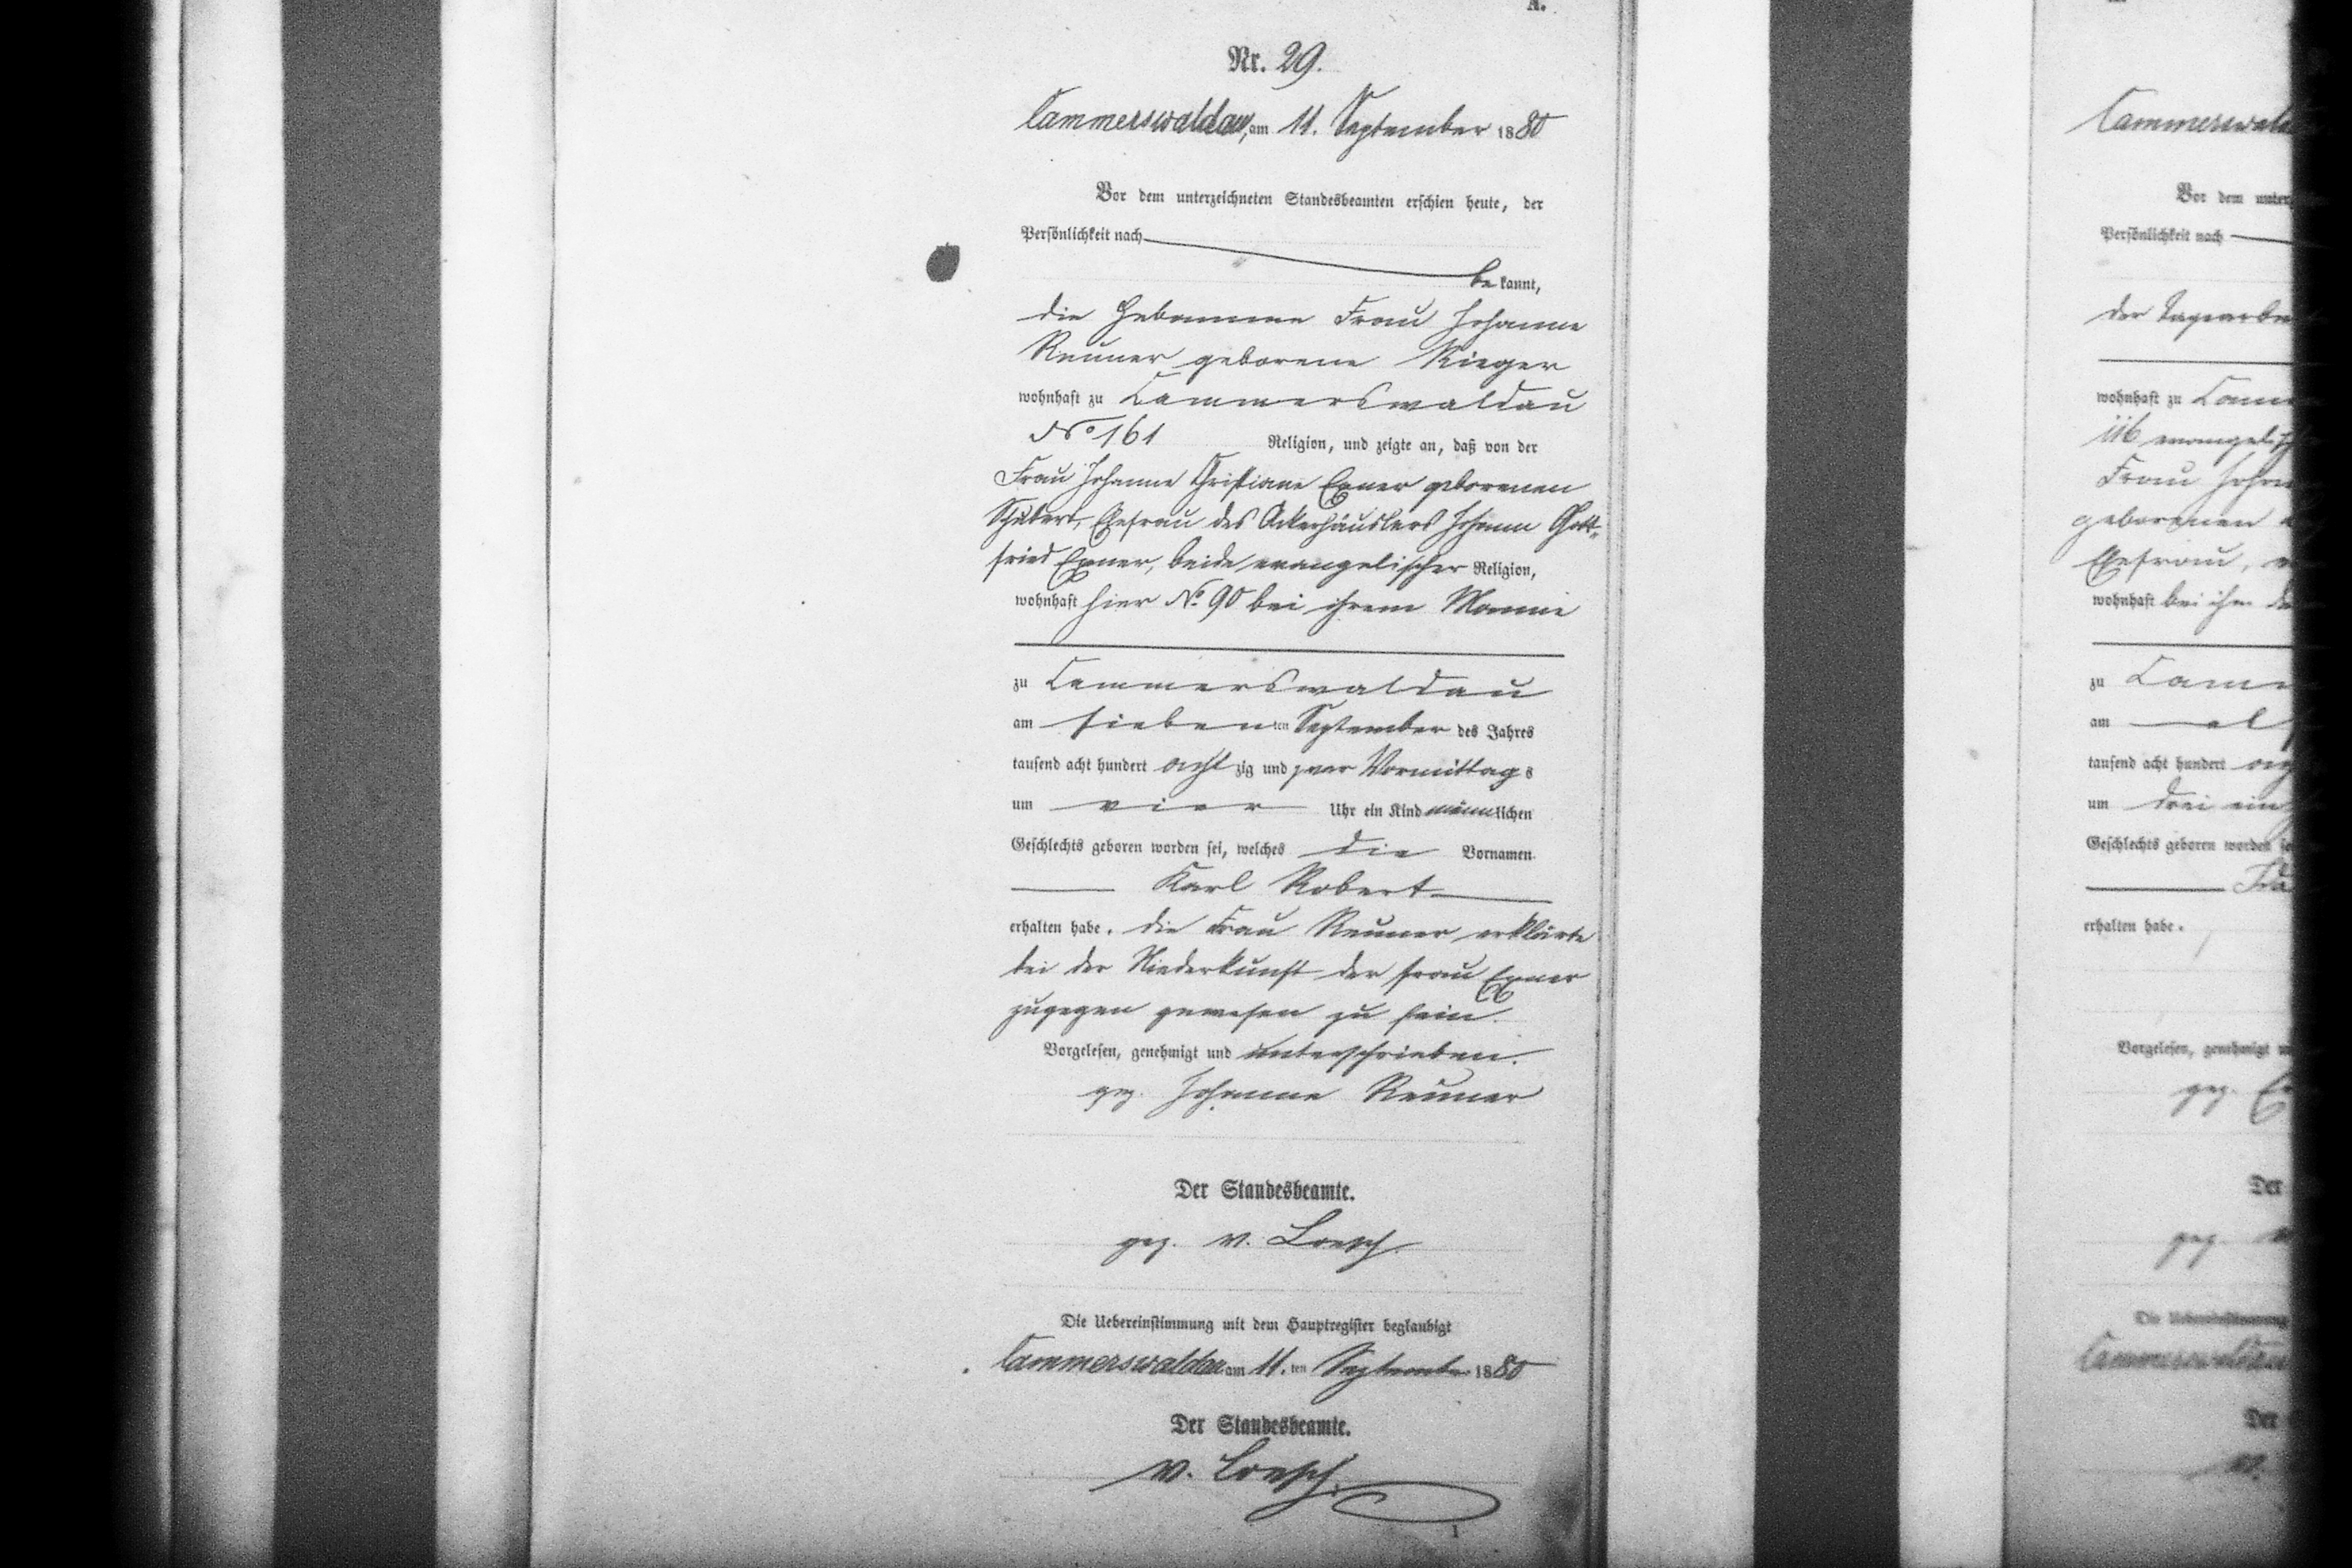 A.
Nr. 29.
Cammerswaldau, am 11. September 1880
Vor dem unterzeichneten Standesbeamten erschien heute, der
Persönlichkeit nach
bekannt,
die Hebamme Frau Johanne
Reuner geborene Rieger
wohnhaft zu Cammerswaldau
No 161 Religion, und zeigte an, daß von der
Frau Johanne Christiane Exner geborenen
Schubert, Ehefrau des Ackerhäuslers Johann Gott-
fried Exner, beide evangelischer Religion,
wohnhaft hier No. 90 bei ihrem Manne
zu Cammerswaldau
am siebenten September des Jahres
tausend acht hundert achtzig und zwar Vormittags
um vier Uhr ein Kind männlichen
Geschlechts geboren worden sei, welches die Vornamen
Karl Robert
erhalten habe. die Frau Reuner erklärte
bei der Niederkunft der Frau Exner
zugegen gewesen zu sein.
Vorgelesen, genehmigt und unterschrieben.
gez. Johanne Reuner
Der Standesbeamte.
gez. v. Loesch.
Die Uebereinstimmung mit dem Hauptregister beglaubigt
Cammerswaldau am 11.ten September 1880
Der Standesbeamte.
v. Loesch.
1
Vor dem
Persönlichkeit nach
der
wohnhaft zu
116
Frau
geborenen
Ehefrau,
wohnhaft bei ihm
zu
am
tausend acht hundert
um drei ein
Geschlechts geboren worden
erhalten habe.
Vorgelesen, genehmigt
gez.
Der
gez.
Die
Der